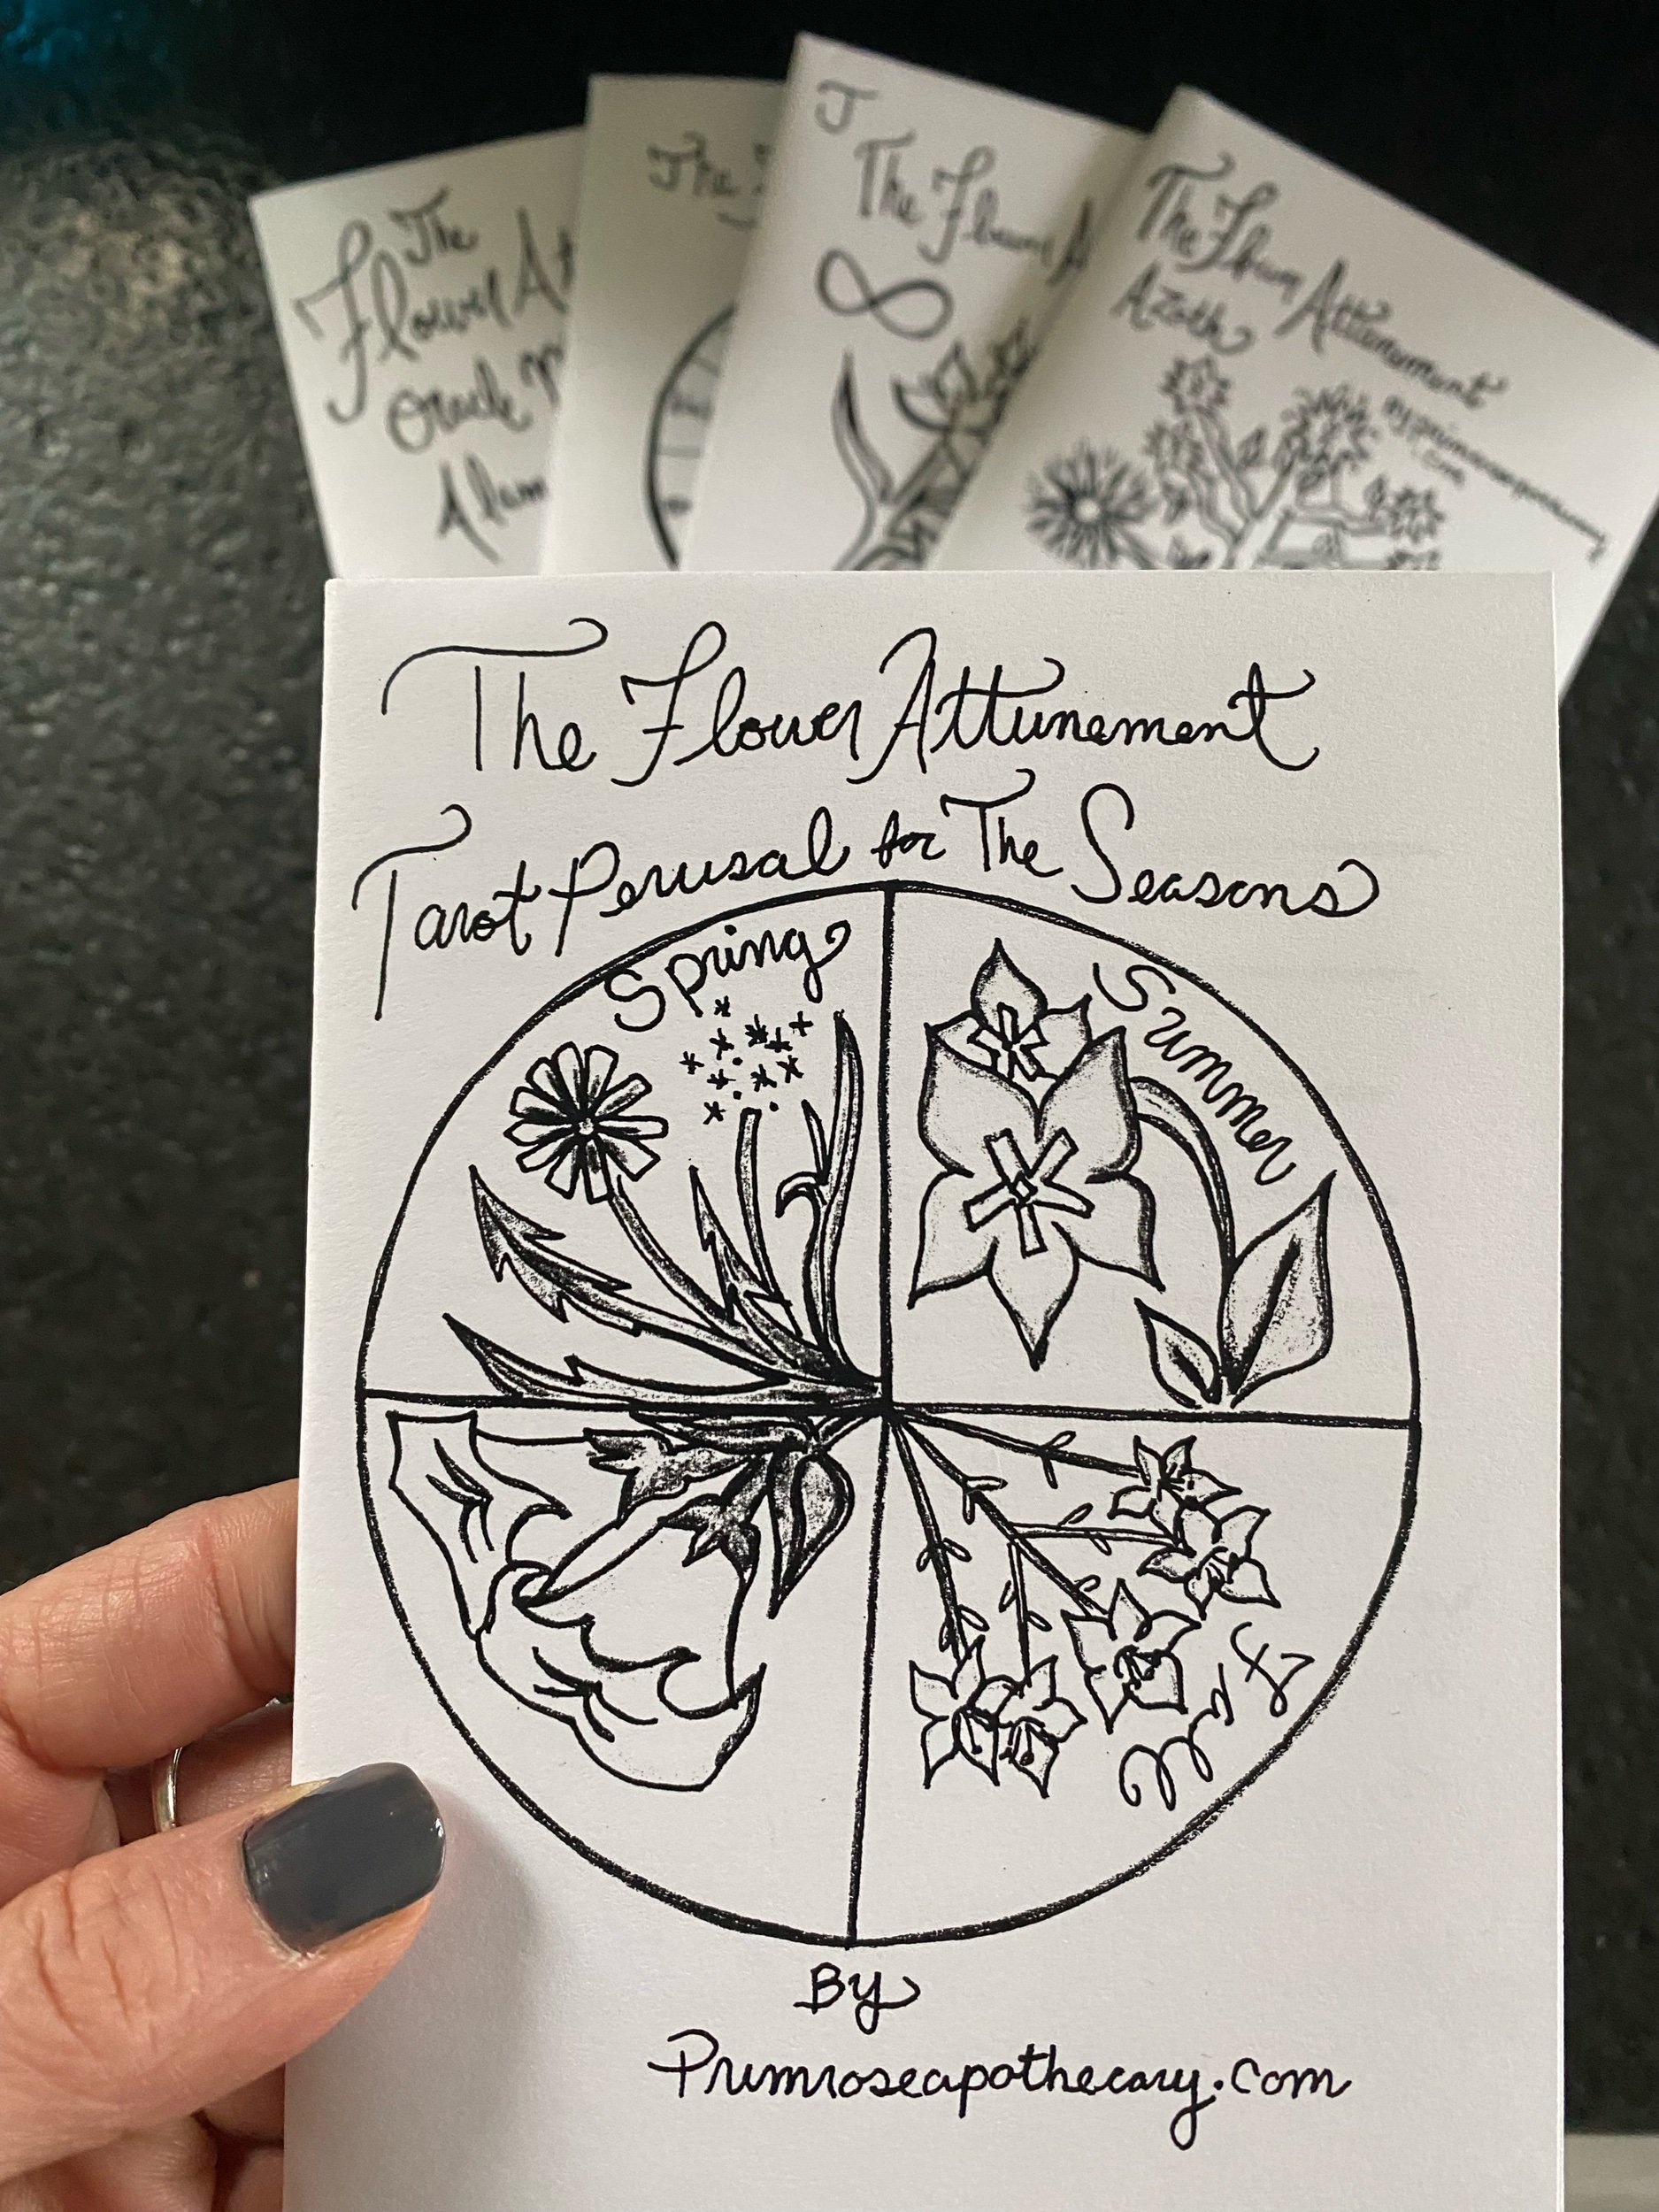 The
Flower
Oracle
The
J
The Flower A
The Flower Attunement
Azoth
By primroseapothecary
.com
The Flower Attunement
Tarot Perusal for The Seasons
Spring
Summer
Fall
By
Primroseapothecary.com